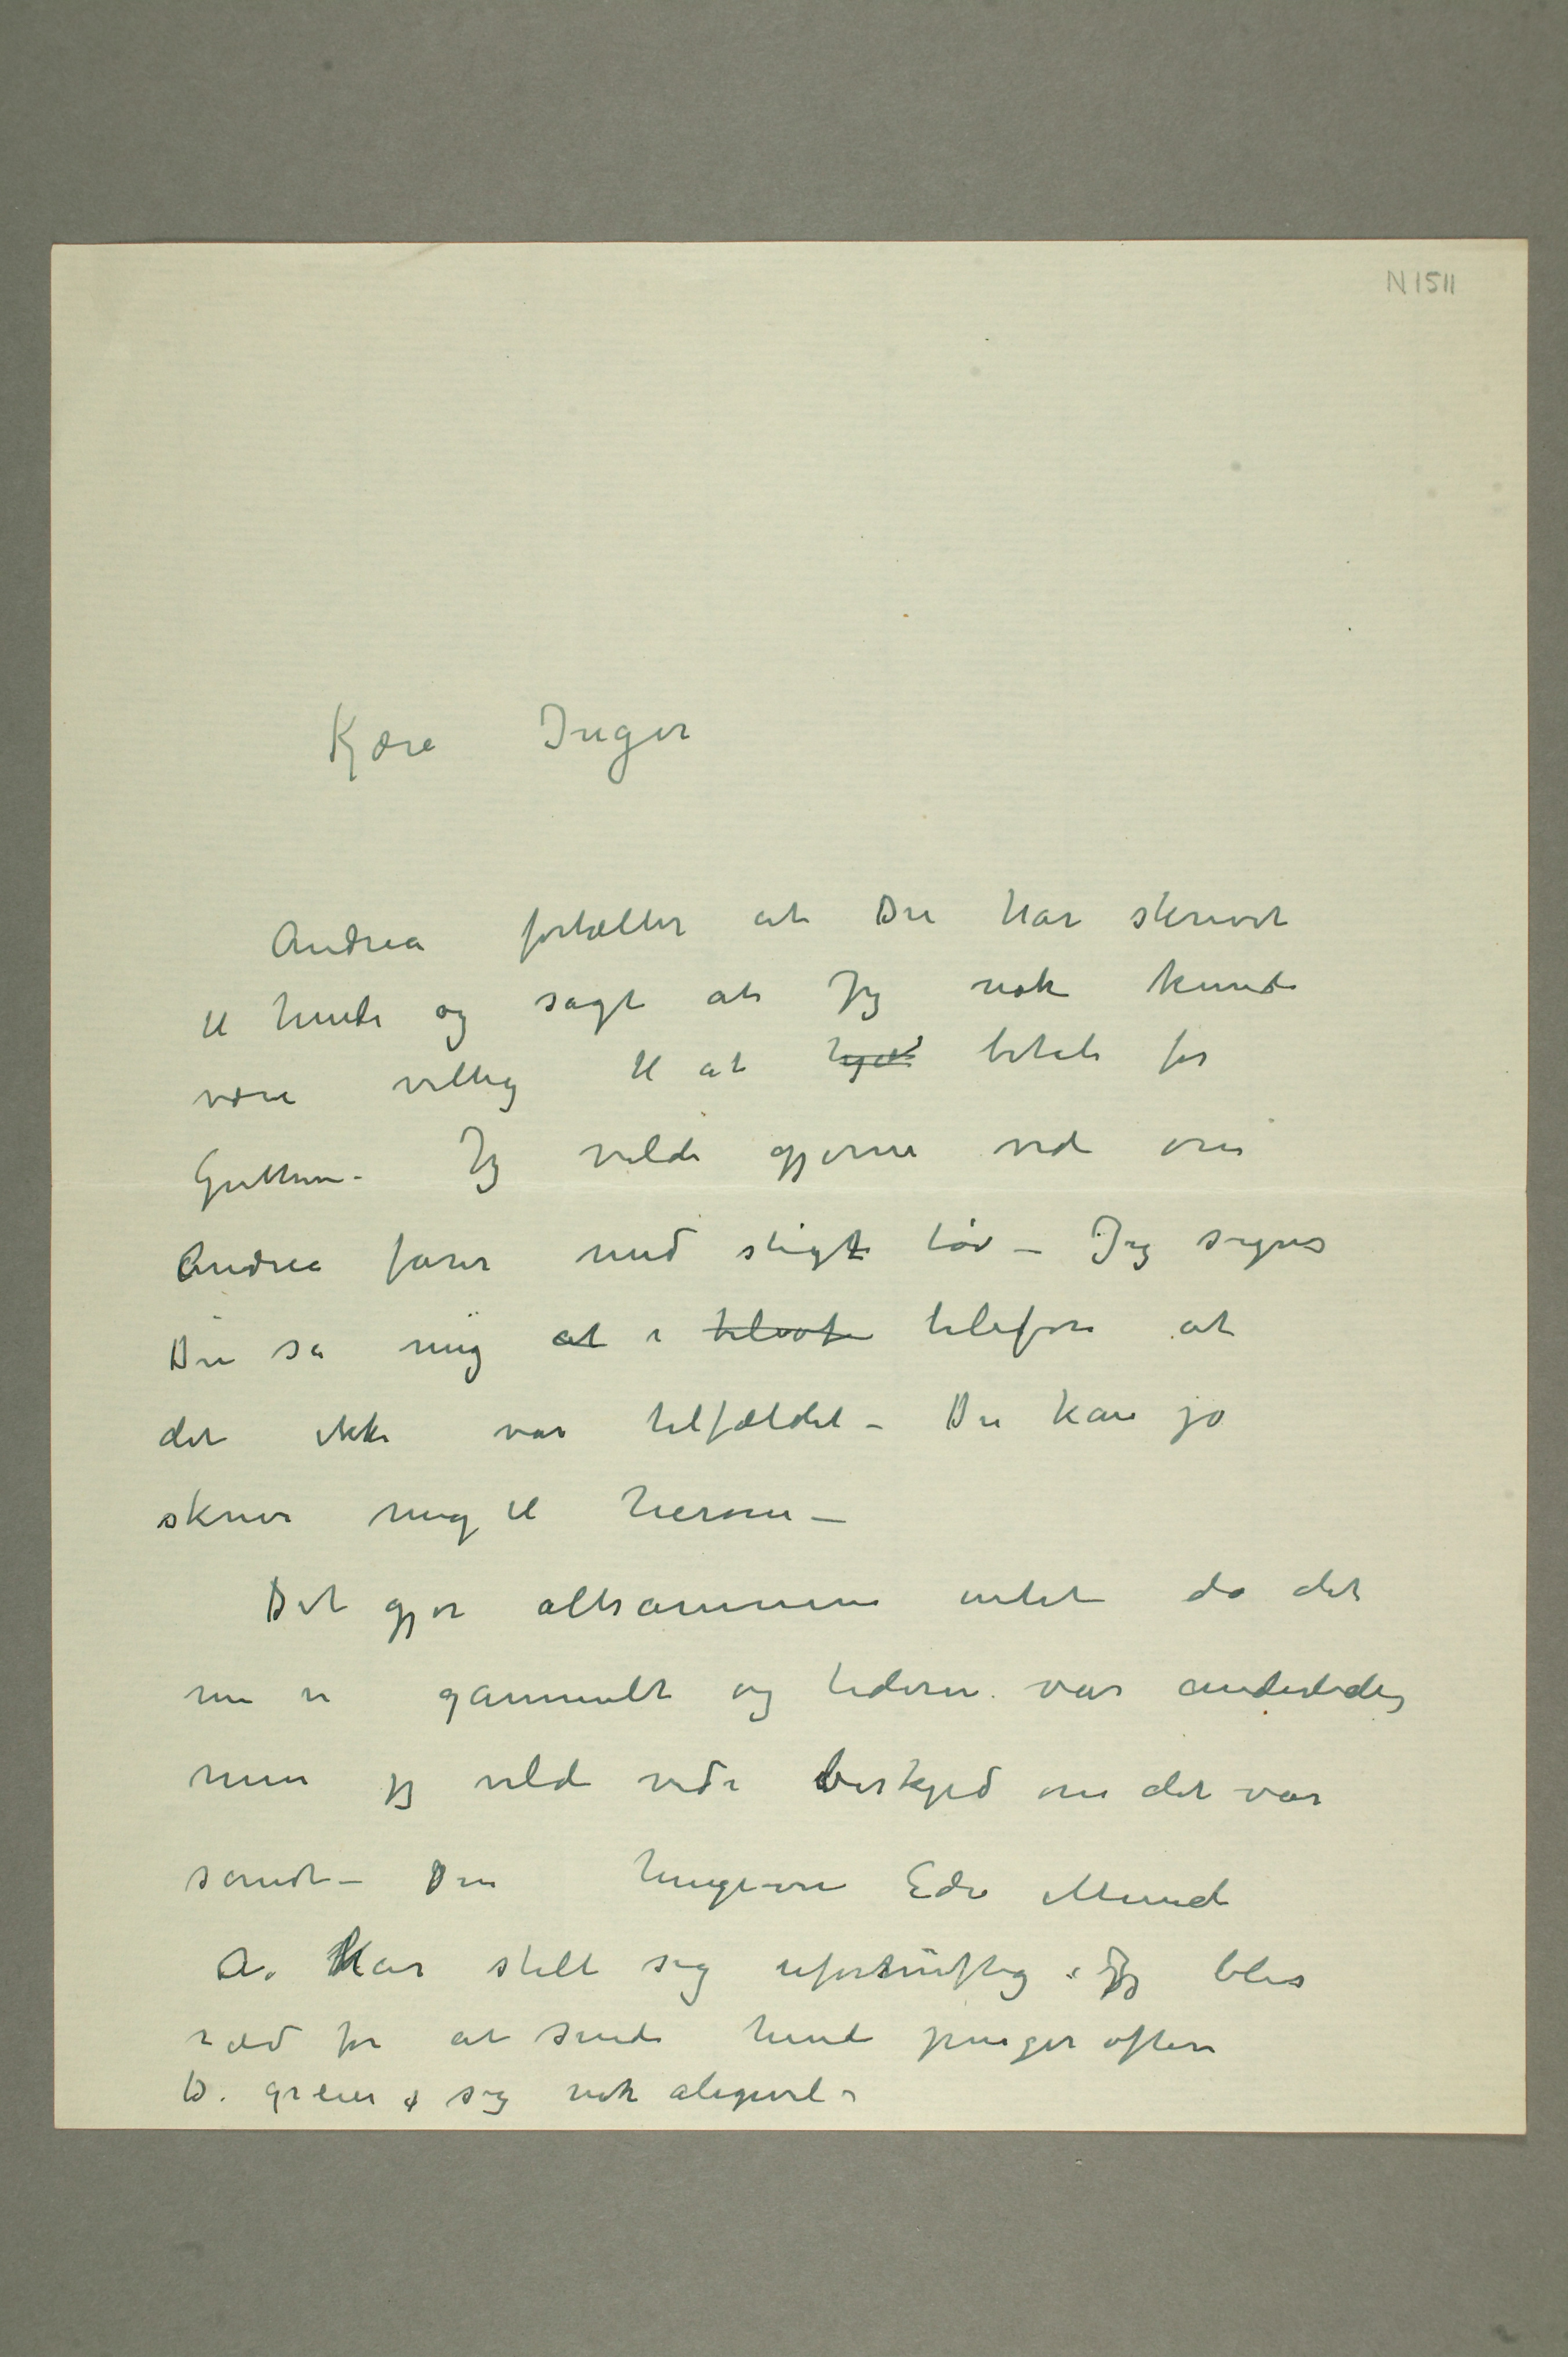 N 1511
Kjære Inger
Andrea fortæller at Du har skrevet
til hende og sagt at Jeg nok kunde
være villig til at betale for
Gutten – Jeg vilde gjerne vide om
Andrea farer med sligt tøv – Jeg synes
Du sa mig at i telefon at
det ikke var tilfældet – Du kan jo
skrive mig til herom –
Det gjør altsammen intet da det
nu er gammelt og tiderne var anderledes
men jeg vilde vide beskjed om det var
sandt – Din hengivne Edv Munch
A. har stelt sig ufornuftig. Jeg blev
ræd for at sende hende penger oftere
D. greier sig nok aligevel –